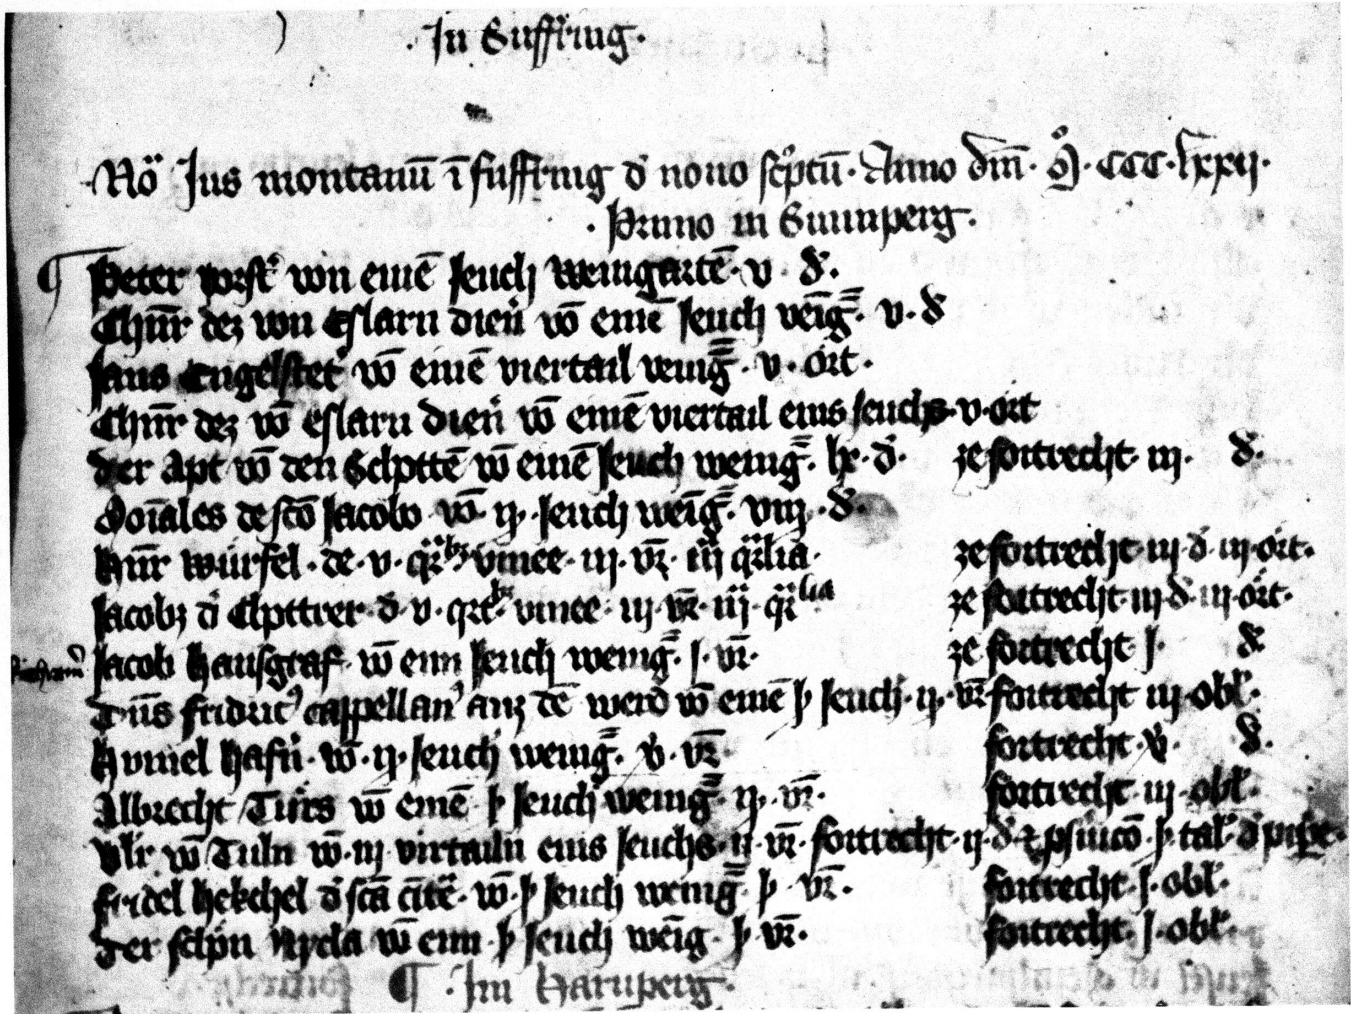 In Suffring.
Nō Jus montanū ī suffring d' nouo sc'ptū. Anno dm̄. M°. CCC. lxxij.
Primo in Sunnperg.
¶ Peter vorst' von einē Jeuch Weingartē. v. d.
Chūr dez von Eslarn dien' vō einē Jeuch weīg. v. d
Jans Engelstet' vō einē viertail weing. v. ort.
Chūr dez vō Eslarn dien' vō einē viertail eins Jeuchs. v. ort
der Apt vō den Schottē vō einē Jeuch weing. lx. d. ze fortrecht iij. d.
Moīales de sc̄o Jacobo vō. ij. Jeuch weīg. viij. d.
hūr würfel. de. v. vinee. iij. vr̄. iij q̄rlia. ze fortrecht iij. d. iij. ort.
Jacob d' v. vinee. iij. vr̄. iij. q̄rlia ze fortrecht iij d. iij. ort.
Jacob hausgraf. vō ein Jeuch weing. j. vr̄. ze fortrecht j. d
Dn̄s fridric' cappellan' auz dē werd vō einē þ Jeuch. ij. vr̄ fortrecht iij. obl'.
hafn'. vō. ij. Jeuch weing. v. vr̄ fortrecht. v. d.
Albrecht Türs vō einē þ Jeuch weing. ij. vr̄. fortrecht iij. obl'.
Vlr' vō Tuln vō. iij virtailn eins Jeuchs. ij. vr̄. fortrecht. ij. d þ tal'
fridel hekchel d' sc̄a vō. þ Jeuch weing. þ vr̄. fortrecht. j. obl'.
der vō ein þ Jeuch weīg. þ vr̄. fortrecht. j. obl'.
¶ Im Harnperg.